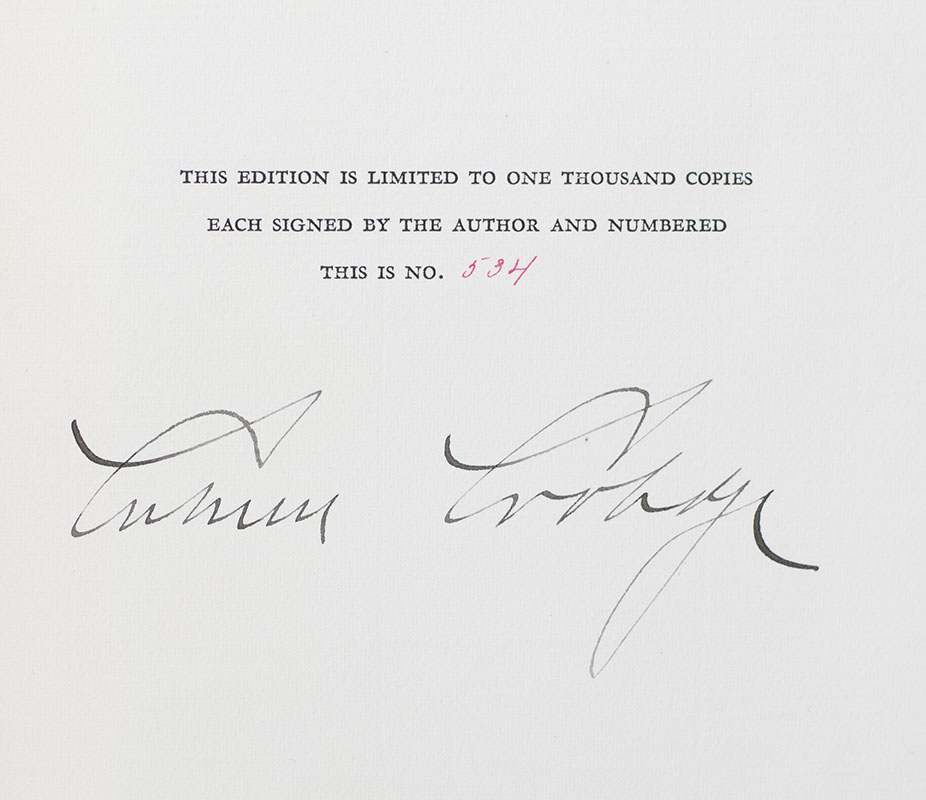 THIS EDITION IS LIMITED TO ONE THOUSAND COPIES
EACH SIGNED BY THE AUTHOR AND NUMBERED
THIS IS NO. 534
Calvin Coolidge